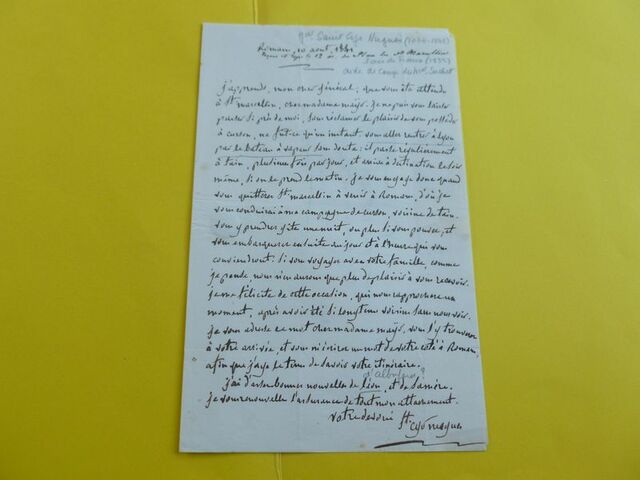 Gal Saint Cyr Nugues (1774-1842)
Romans, 10 aout, 1841
pair de France (1832)
aide de camp du Mal Suchet
j'apprends, mon cher général, que vous êtes attendu
à St marcellin, chez madame mayo. Je ne puis vous laisser
passer si près de moi, sans réclamer le plaisir de vous posséder
à curson, ne fut-ce qu'un instant. vous allez rentrer à Lyon
par le bateau à vapeur sans doute: il part régulièrement
à tain, plusieurs fois par jour, et arrive à destination le soir
même, si on le prend le matin. je vous engage donc quand
vous quitterez St marcellin à venir à Romans, d'où je
vous conduirai à ma campagne de curson, voisine de tain.
vous y prendrez gîte une nuit, ou plus si vous pouvez, et
vous embarquerez ensuite au jour et à l'heure qui vous
conviendront. Si vous voyagez avec votre famille, comme
je pense, nous n'en aurons que plus de plaisir à vous recevoir.
Je me félicite de cette occasion, qui nous rapprochera un
moment, après avoir été si longtems voisins sans nous voir.
Je vous adresse ce mot chez madame mayo, vous l'y trouverez
à votre arrivée, et vous m'écrirez un mot de votre côté à Romans,
afin que j'aye le tems de savoir votre itinéraire.
d'albufera ?
j'ai d'assez bonnes nouvelles de Léon, et de sa mère.
je vous renouvelle l'assurance de tout mon attachement.
votre dévoué St cyr nugues